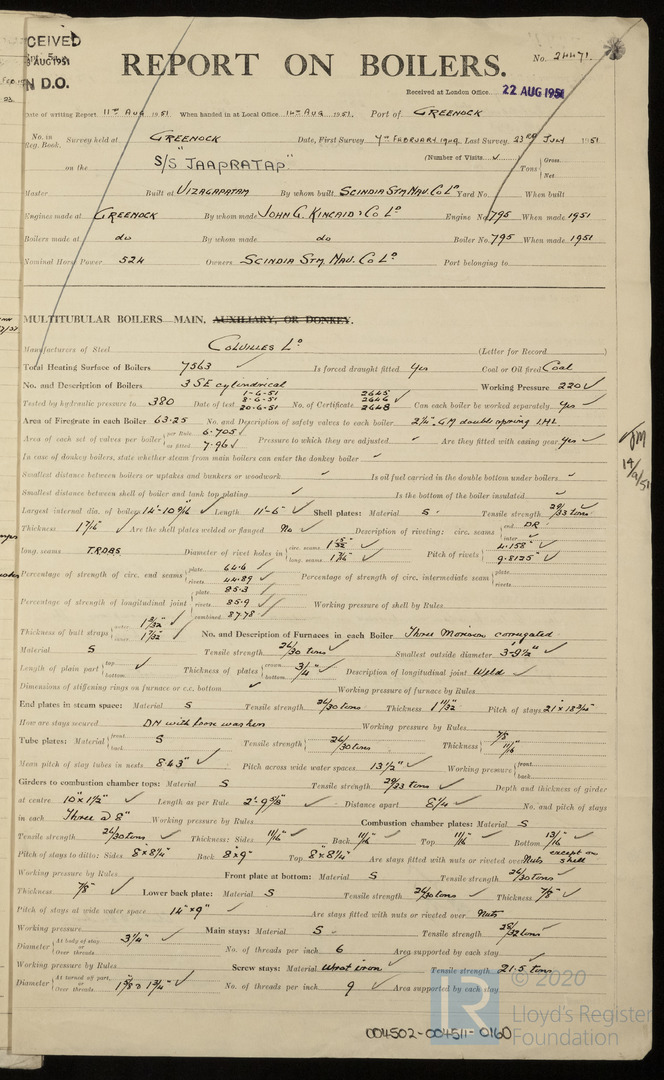 CEIVED
AUG 1951
N D.O.
No. 24471
REPORT ON BOILERS.
Received at London Office 22 AUG 1951
Date of writing Report 11TH AUG 1951 When handed in at Local Office 14TH AUG 1951 Port of GREENOCK
No. in Reg. Book. Survey held at GREENOCK Date, First Survey 7TH FEBRUARY 1949 Last Survey 23RD JULY 1951
on the S/S "JAAPRATAP" (Number of Visits ✓) Tons { Gross Net
Master Built at VIZAGAPATAM By whom built SCINDIA STM NAV. CO LD Yard No. When built
Engines made at GREENOCK By whom made JOHN G. KINCAID & CO LD Engine No. 795 When made 1951
Boilers made at do By whom made do Boiler No. 795 When made 1951
Nominal Horse Power 524 Owners SCINDIA STM. NAV. CO LD Port belonging to
MULTITUBULAR BOILERS MAIN, AUXILIARY, OR DONKEY.
Manufacturers of Steel COLVILLES LD (Letter for Record )
Total Heating Surface of Boilers 7563 ✓ Is forced draught fitted Yes Coal or Oil fired Coal
No. and Description of Boilers 3 SE cylindrical Working Pressure 220 ✓
Tested by hydraulic pressure to 380 Date of test 1-6-51 8-6-51 20-6-51 No. of Certificate 2645 2646 2648 ✓ Can each boiler be worked separately Yes ✓
Area of Firegrate in each Boiler 63.25 No. and Description of safety valves to each boiler 2¼" GM double spring IHL
Area of each set of valves per boiler { per Rule 6.705 ✓ as fitted 7.96 ✓ Pressure to which they are adjusted ✓ Are they fitted with easing gear Yes ✓
In case of donkey boilers, state whether steam from main boilers can enter the donkey boiler ✓
Smallest distance between boilers or uptakes and bunkers or woodwork ✓ Is oil fuel carried in the double bottom under boilers ✓
Smallest distance between shell of boiler and tank top plating ✓ Is the bottom of the boiler insulated ✓
Largest internal dia. of boilers 14'-10 9/16" ✓ Length 11'-6" ✓ Shell plates: Material S Tensile strength 29/33 tons
Thickness 1 7/16" ✓ Are the shell plates welded or flanged No ✓ Description of riveting: circ. seams { end DR inter ✓
long. seams T.R.D.B.S Diameter of rivet holes in { circ. seams 1 15/32" ✓ long. seams 1 7/16" ✓ Pitch of rivets { 4.158" ✓ 9.8125" ✓
Percentage of strength of circ. end seams { plate 64.6 rivets 44.89 ✓ Percentage of strength of circ. intermediate seam { plate rivets
Percentage of strength of longitudinal joint { plate 85.3 rivets 85.9 combined 87.78 ✓ Working pressure of shell by Rules
Thickness of butt straps { outer 1 3/32" inner 1 7/32" ✓ No. and Description of Furnaces in each Boiler Three Morison corrugated
Material S Tensile strength 26/30 tons ✓ Smallest outside diameter 3'-9½" ✓
Length of plain part { top bottom ✓ Thickness of plates { crown bottom 3/4" ✓ Description of longitudinal joint Weld ✓
Dimensions of stiffening rings on furnace or c.c. bottom ✓ Working pressure of furnace by Rules
End plates in steam space: Material S Tensile strength 26/30 tons Thickness 1 11/32" Pitch of stays 21" x 18¾"
How are stays secured DN with loose washers Working pressure by Rules
Tube plates: Material { front back S Tensile strength { 26/30 tons Thickness { 7/8 11/16"
Mean pitch of stay tubes in nests 8.43" ✓ Pitch across wide water spaces 13½" ✓ Working pressure { front back
Girders to combustion chamber tops: Material S Tensile strength 29/33 tons ✓ Depth and thickness of girder
at centre 10" x 1½" ✓ Length as per Rule 2'-9⅝" ✓ Distance apart 8¼ ✓ No. and pitch of stays
in each Three @ 8" Working pressure by Rules Combustion chamber plates: Material S
Tensile strength 26/30 tons ✓ Thickness: Sides 11/16" ✓ Back 11/16 ✓ Top 11/16 ✓ Bottom 13/16 ✓
Pitch of stays to ditto: Sides 8" x 8¼" Back 8" x 9" Top 8" x 8¼" Are stays fitted with nuts or riveted over Nuts except on shell
Working pressure by Rules Front plate at bottom: Material S Tensile strength 26/30 tons ✓
Thickness 7/8" ✓ Lower back plate: Material S Tensile strength 26/30 tons ✓ Thickness 7/8" ✓
Pitch of stays at wide water space 14" x 9" ✓ Are stays fitted with nuts or riveted over Nuts
Working pressure Main stays: Material S Tensile strength 28/32 tons
Diameter { At body of stay or Over threads 3¼" ✓ No. of threads per inch 6 Area supported by each stay
Working pressure by Rules Screw stays: Material Wrot iron Tensile strength 21.5 tons
Diameter { At turned off part or Over threads 1⅝ & 1¾" ✓ No. of threads per inch 9 Area supported by each stay
JM
14/9/51
004502-004511-0160
© 2020
Lloyd's Register
Foundation